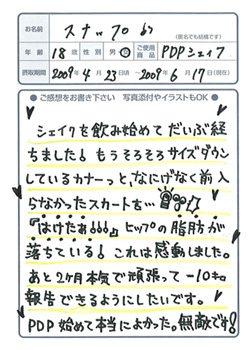 お名前 スナップ的
(匿名でも結構です)
年齢 18歳 性別 男・女 ご使用商品 PDPシェイク
摂取期間 2009年4月23日頃〜2009年6月17日(現在)
●ご感想をお書き下さい 写真添付やイラストもOK●
シェイクを飲み始めてだいぶ経
ちました! もうそろそろサイズダウン
しているカナーっと、なにげなく前入
らなかったスカートを…
『はけたぁ!!!』 ヒップの脂肪が
落ちている! これは感動しました。
あと2ヶ月本気で頑張って-10キロ
報告できるようにしたいです。
PDP始めて本当によかった。無敵です!